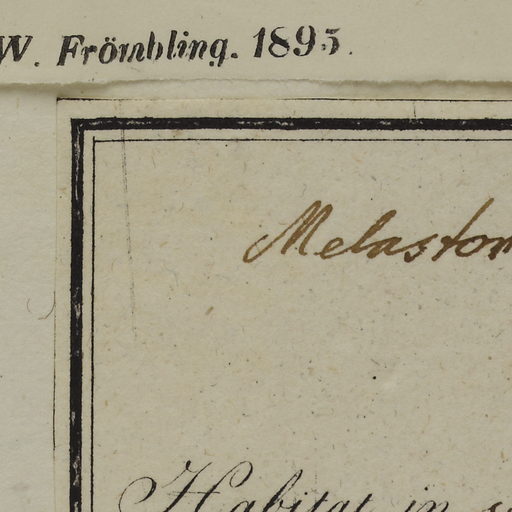 W. Frömbling. 1895.
Melastom
Habitat in